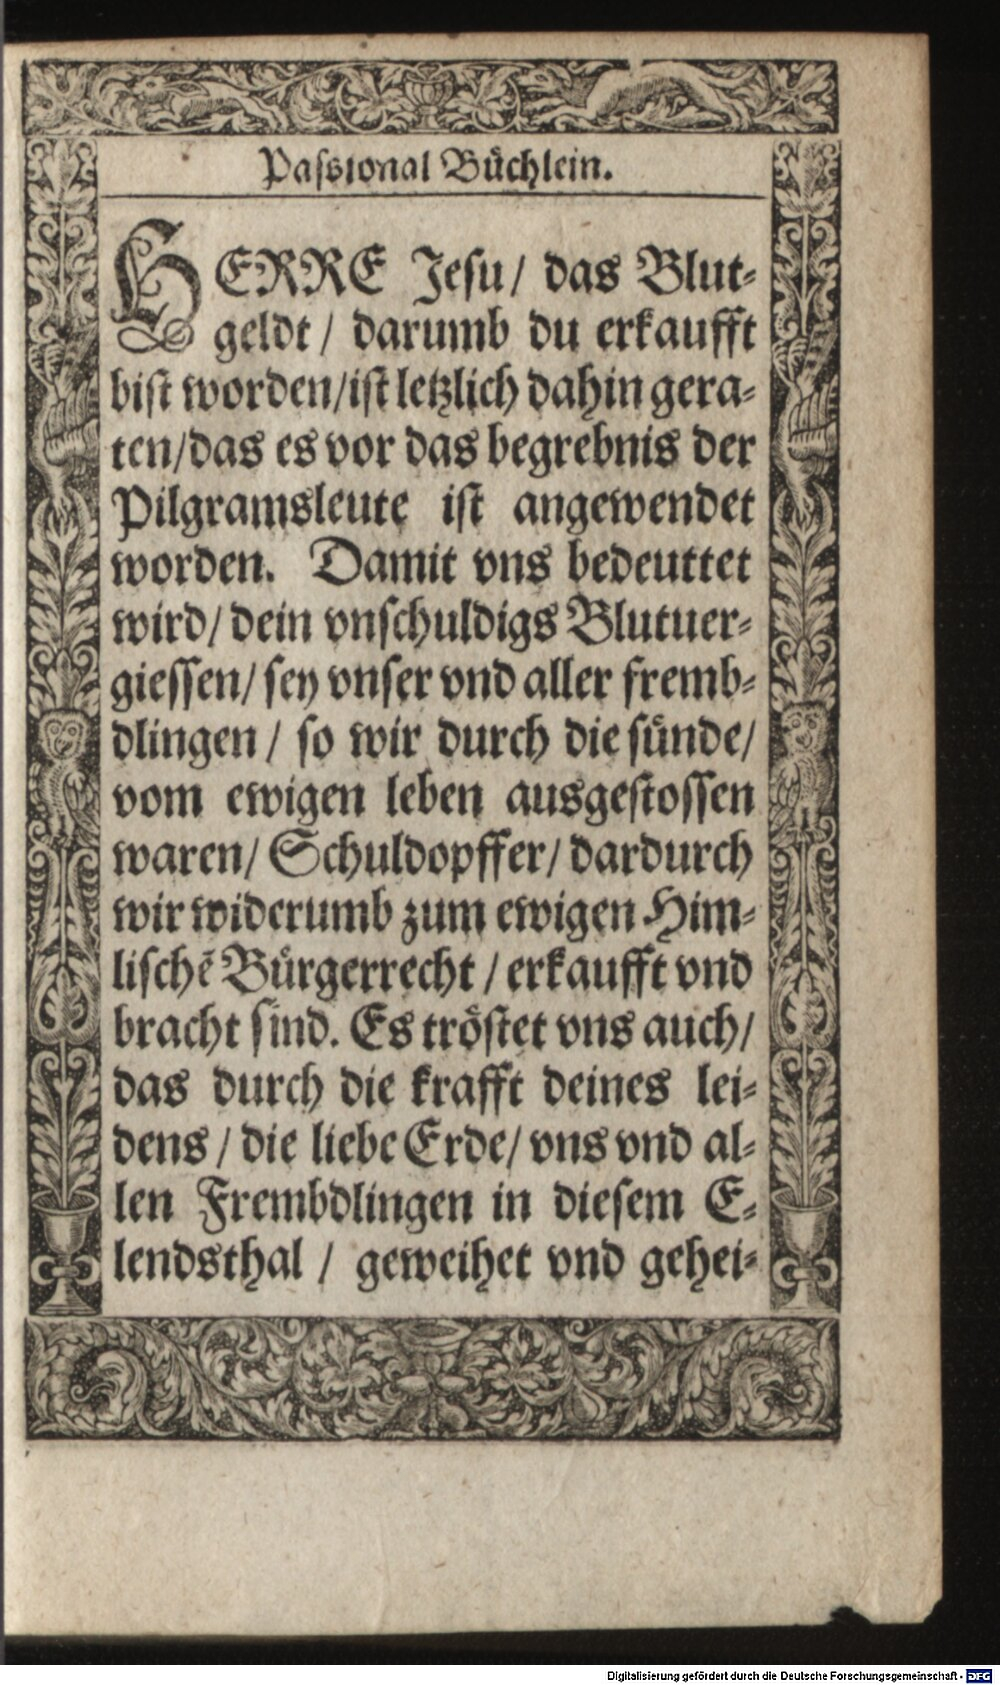 Passional Büchlein.
HERRE Jesu / das Blut⸗
geldt / darumb du erkaufft
bist worden / ist letzlich dahin gera⸗
ten / das es vor das begrebnis der
Pilgramsleute ist angewendet
worden. Damit vns bedeuttet
wird / dein vnschuldigs Blutuer⸗
giessen / sey vnser vnd aller fremb⸗
dlingen / so wir durch die sünde /
vom ewigen leben ausgestossen
waren / Schuldopffer / dardurch
wir widerumb zum ewigen Him⸗
lischē Bürgerrecht / erkaufft vnd
bracht sind. Es tröstet vns auch /
das durch die krafft deines lei⸗
dens / die liebe Erde / vns vnd al⸗
len Frembdlingen in diesem E⸗
lendsthal / geweihet vnd gehei⸗
Digitalisierung gefördert durch die Deutsche Forschungsgemeinschaft - DFG